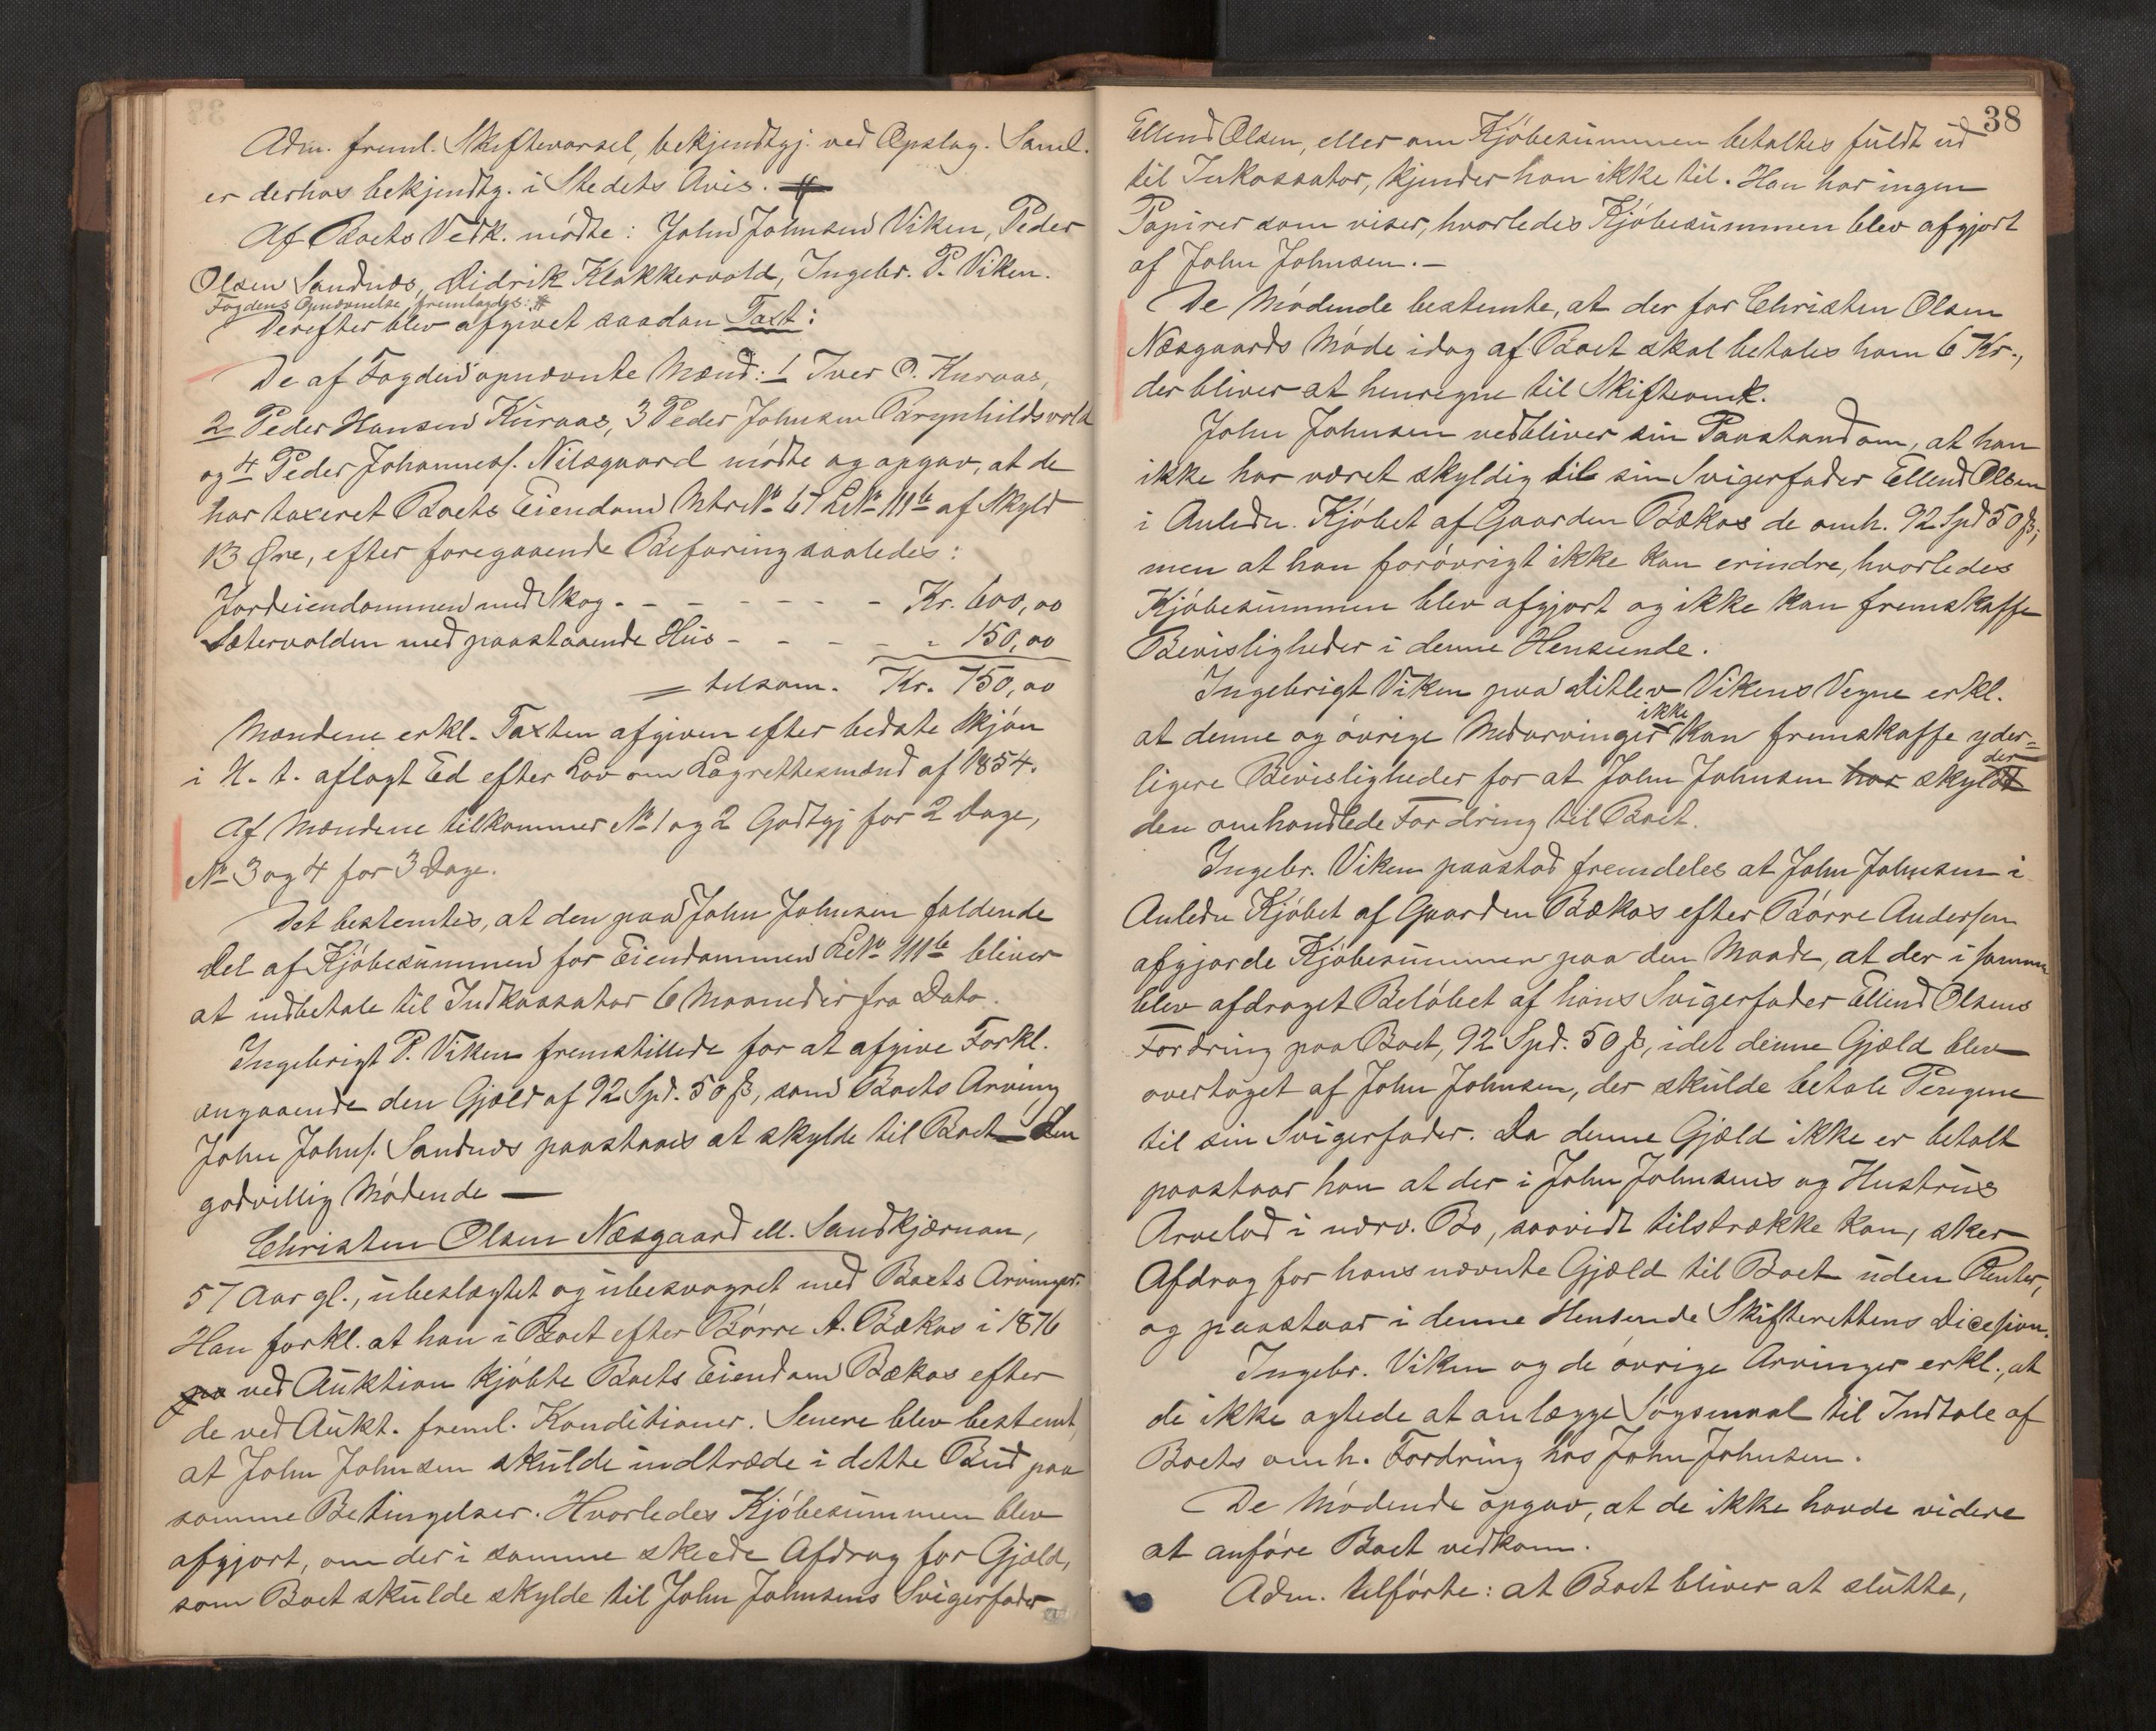 Adm. freml. Skiftevarsel, bekjendtgj. ved Opslag. Saml.
er derhos bekjendtg. i Stedets Avis.
Af Boets Vedk. mødte: John Johnsen Viken, Peder
Olsen Sandnæs, Didrik Klokkervold, Ingebr. P. Viken.
Fogdens Opnævnelse fremlagdes: #
Derefter blev afgivet saadan Taxt:
De af Fogden opnævnte Mænd: 1 Iver O. Kuraas,
2 Peder Hansen Kuraas, 3 Peder Johnsen Brynhildsvold
og 4 Peder Johannesf. Nilsgaard mødte og opgav, at de
har taxeret Boets Eiendom Mtr№ 67 L№ 111b af Skyld
13 Øre, efter foregaaende Befaring saaledes:
Jordeiendommen med Skog - - - - - - - Kr. 600,00
Sætervolden med paastaaende Hus - - - - - 150,00
= tilsam. Kr. 750,00
Mændene erkl. Taxten afgiven efter bedste Skjøn
i H. t. aflagt Ed efter Lov om Lagrettesmænd af 1854.
Af Mændene tilkommer № 1 og 2 Godtgj for 2 Dage,
№ 3 og 4 for 3 Dage.
Det bestemtes, at den paa John Johnsen faldende
Del af Kjøbesummen for Eiendommen L№ 111b bliver
at indbetale til Indkassator 6 Maaneder fra Dato.
Ingebrigt P. Viken fremstillede for at afgive Forkl.
angaaende den Gjæld af 92 Spd. 50 ß, som Boets Arving
John Johnf. Sandnæs paastaaes at skylde til Boet den
godvillig Mødende —
Christen Olsen Næsgaard ell. Sandkjærnan,
57 Aar gl., ubeslægtet og ubesvogret med Boets Arvinger.
Han forkl. at han i Boet efter Børre A. Bækos i 1876
paa ved Auktion kjøbte Boets Eiendom Bækos efter
de ved Aukt. freml. Konditioner. Senere blev bestemt,
at John Johnsen skulde indtræde i dette Bud paa
samme Betingelser. Hvorledes Kjøbesummen blev
afgjort, om der i samme skeede Afdrag for Gjæld,
som Boet skulde skylde til John Johnsens Svigerfader
38
Ellend Olsen, eller om Kjøbesummen betaltes fuldt ud
til Inkassator, kjender han ikke til. Han har ingen
Papirer som viser, hvorledes Kjøbesummen blev afgjort
af John Johnsen.-
De Mødende bestemte, at der for Christen Olsen
Næsgaards Møde idag af Boet skal betales ham 6 Kr.,
der bliver at henregne til Skifteomk.
John Johnsen vedbliver sin Paastand om, at han
ikke har været skyldig til sin Svigerfader Ellend Olsen
i Anledn. Kjøbet af Gaarden Bækos de omh. 92 Spd 50 ß;
men at han forøvrigt ikke kan erindre, hvorledes
Kjøbesummen blev afgjort og ikke kan fremskaffe
Bevisligheder i denne Henseende.
Ingebrigt Viken paa Ditlev Vikens Vegne erkl.
at denne og øvrige Medarvinger ikke kan fremskaffe yder=
ligere Bevisligheder for at John Johnsen har skylder
den omhandlede Fordring til Boet.
Ingebr. Viken paastod fremdeles at John Johnsen i
Anledn Kjøbet af Gaarden Bækos efter Børre Andersen
afgjorde Kjøbesummen paa den Maade, at der i samme
blev afdraget Beløbet af hans Svigerfader Ellend Olsens
Fordring paa Boet, 92 Spd. 50 ß, idet denne Gjæld blev
overtaget af John Johnsen, der skulde betale Pengene
til sin Svigerfader. Da denne Gjæld ikke er betalt
paastaar han at der i John Johnsens og Hustrus
Arvelod i nærv. Bo, saavidt tilstrække kan, sker
Afdrag for hans nævnte Gjæld til Boet uden Renter,
og paastaar i denne Henseende Skifterettens Dicesjon.
Ingebr. Viken og de øvrige Arvinger erkl., at
de ikke agtede at anlægge Søgsmaal til Indtale af
Boets omh. Fordring hos John Johnsen.
De Mødende opgav, at de ikke havde videre
at anføre Boet vedkom.
Adm. tilførte: at Boet bliver at slutte,